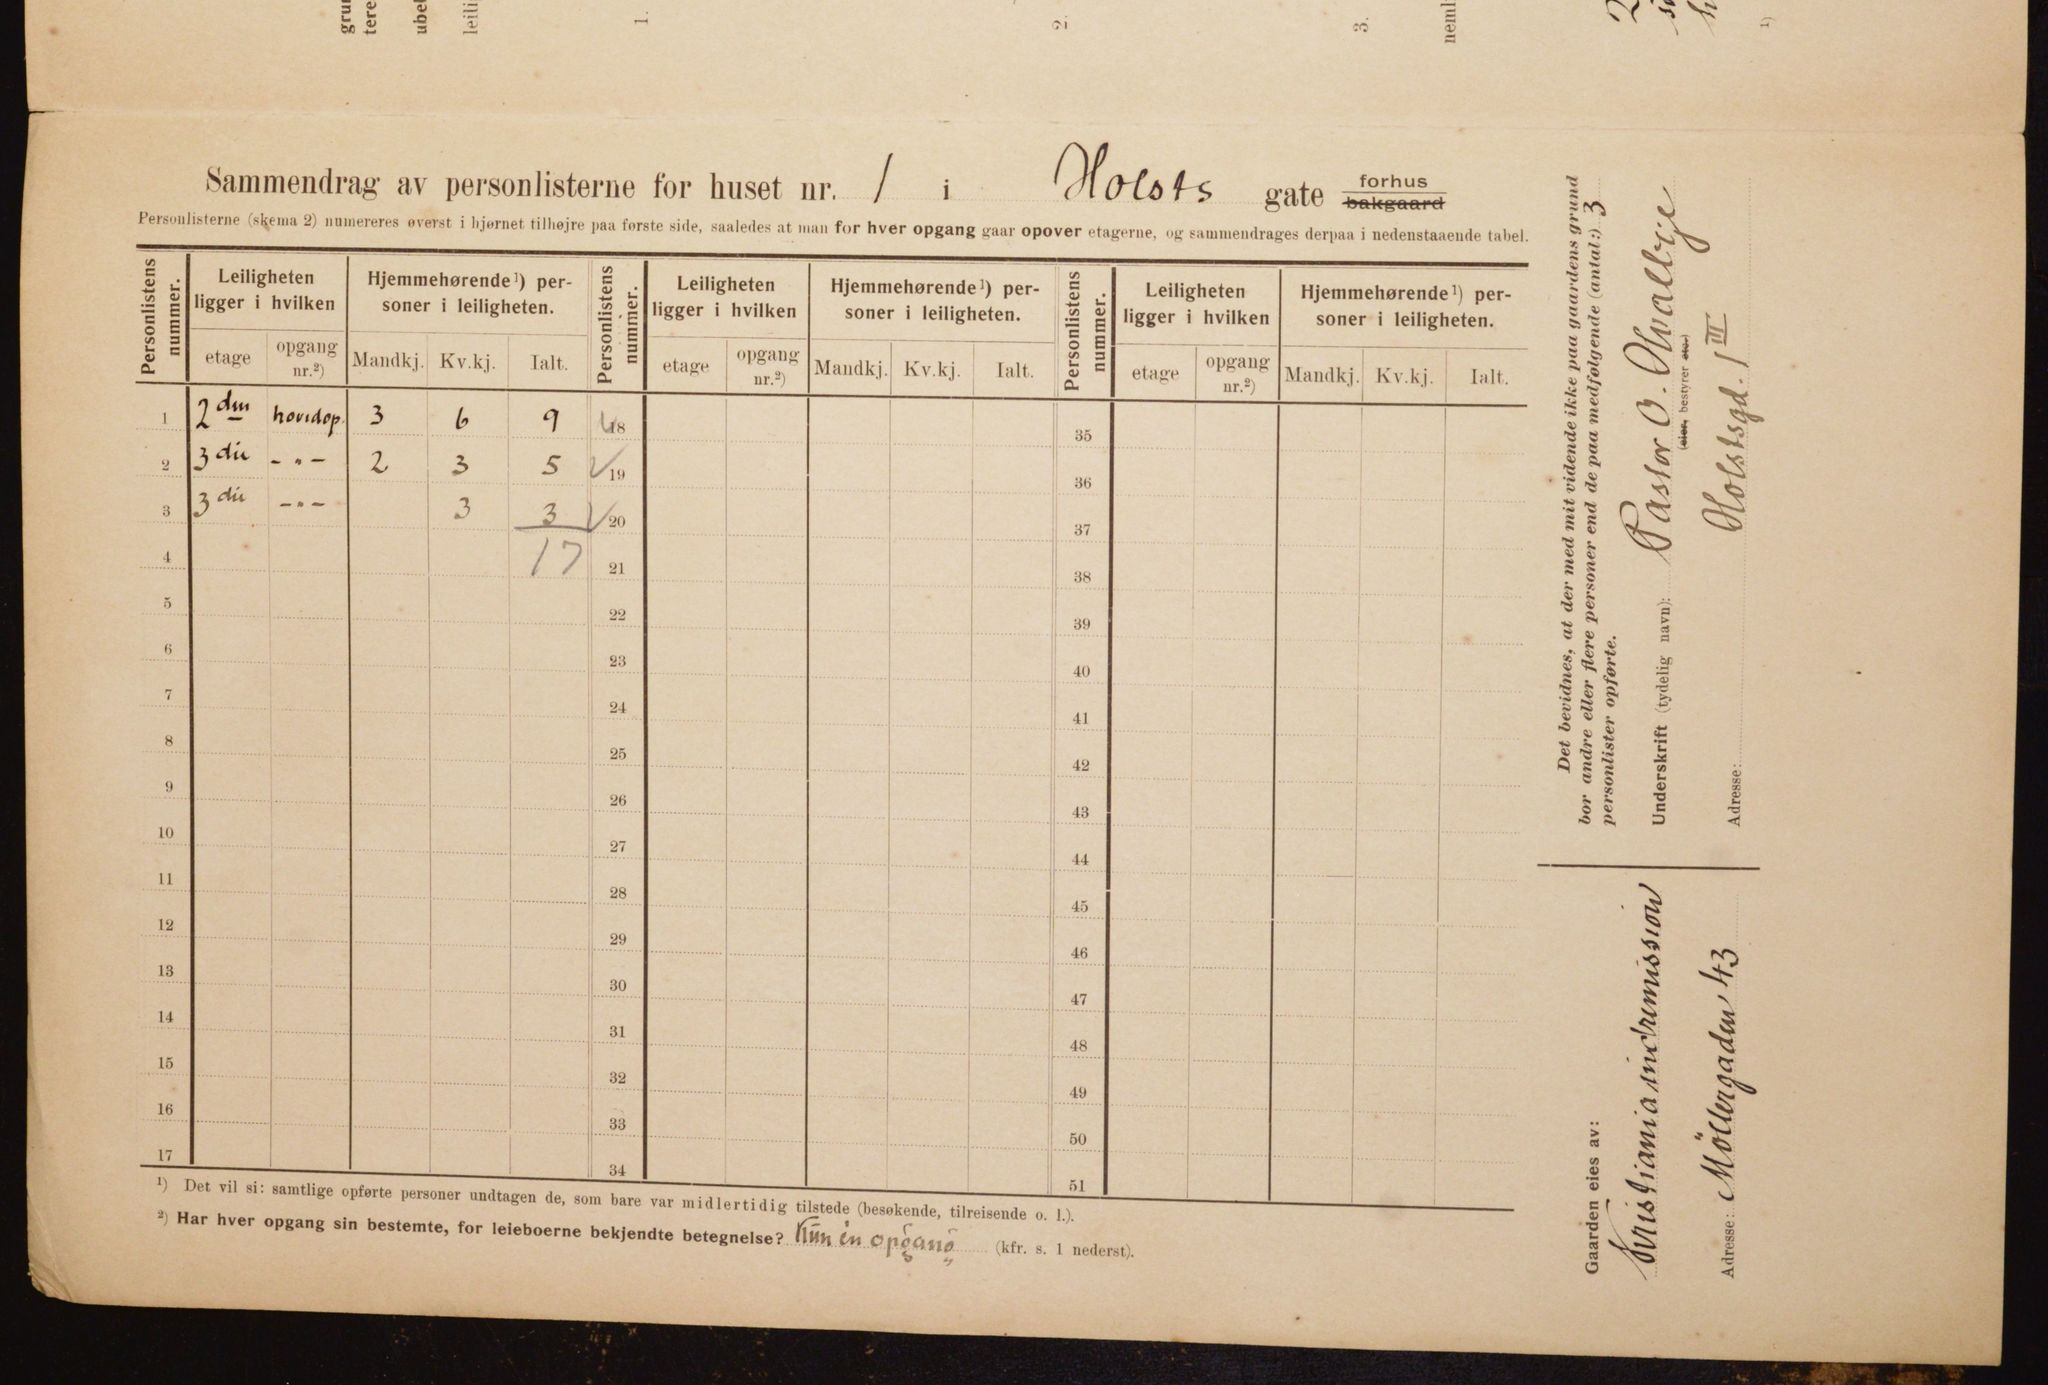 1.
2.
3.
Sammendrag av personlisterne for huset nr. 1 i Holsts gate forhus bakgaard
Personlisterne (skema 2) numereres øverst i hjørnet tilhøjre paa første side, saaledes at man for hver opgang gaar opover etagerne, og sammendrages derpaa i nedenstaaende tabel.
Personlistens nummer. Leiligheten ligger i hvilken Hjemmehørende¹) personer i leiligheten. Personlistens nummer. Leiligheten ligger i hvilken Hjemmehørende¹) personer i leiligheten. Personlistens nummer. Leiligheten ligger i hvilken Hjemmehørende¹) personer i leiligheten.
etage opgang nr.²) Mandkj. Kv.kj. Ialt. etage opgang nr.²) Mandkj. Kv.kj. Ialt. etage opgang nr.²) Mandkj. Kv.kj. Ialt.
1 2den hovedop. 3 6 9 18 35
2 3die -"- 2 3 5 19 36
3 3die -"- 3 3 20 37
4 17 21 38
5 22 39
6 23 40
7 24 41
8 25 42
9 26 43
10 27 44
11 28 45
12 29 46
13 30 47
14 31 48
15 32 49
16 33 50
17 34 51
¹) Det vil si: samtlige opførte personer undtagen de, som bare var midlertidig tilstede (besøkende, tilreisende o. l.).
²) Har hver opgang sin bestemte, for leieboerne bekjendte betegnelse? Kun én opgang (kfr. s. 1 nederst).
Det bevidnes, at der med mit vidende ikke paa gaardens grund
bor andre eller flere personer end de paa medfølgende (antal:) 3
personlister opførte.
Underskrift (tydelig navn): Pastor O.
(eier, bestyrer etc.)
Adresse: Holstsgd. 1 III
Gaarden eies av:
Kristiania indremission
Adresse: Möllergaden 43